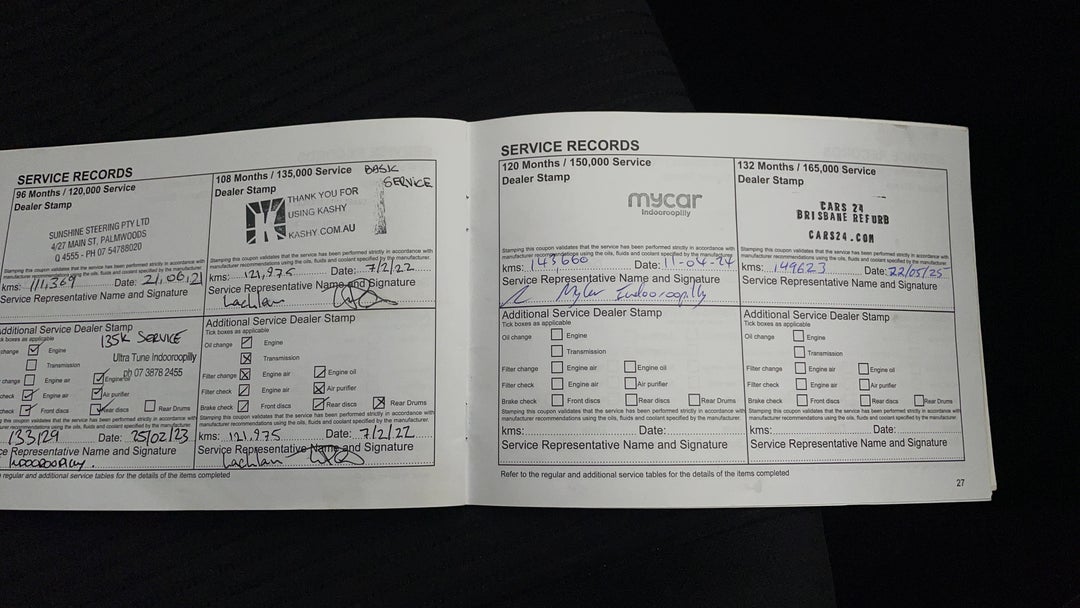 SERVICE RECORDS
96 Months / 120,000 Service
Dealer Stamp
SUNSHINE STEERING PTY LTD
4/27 MAIN ST, PALMWOODS
Q 4555 - PH 07 54788020
Stamping this coupon validates that the service has been performed strictly in accordance with
manufacturer recommendations using the oils, fluids and coolant specified by the manufacturer.
kms: 111,369 Date: 21,06,21
Service Representative Name and Signature
Additional Service Dealer Stamp
135K SERVICE
Tick boxes as applicable
change Engine
Ultra Tune Indooroopilly
Transmission
ph 07 3878 2455
change Engine air Engine oil
check Engine air Air purifier
check Front discs Rear discs Rear Drums
this coupon validates that the service has been performed strictly in accordance with
manufacturer recommendations using the oils, fluids and coolant specified by the manufacturer.
133129 Date: 25/02/23
Service Representative Name and Signature
INDOOROOPILLY.
regular and additional service tables for the details of the items completed
108 Months / 135,000 Service BASIC
SERVICE
Dealer Stamp
THANK YOU FOR
USING KASHY
KASHY.COM.AU
Stamping this coupon validates that the service has been performed strictly in accordance with
manufacturer recommendations using the oils, fluids and coolant specified by the manufacturer.
kms: 121,975 Date: 7/2/22
Service Representative Name and Signature
Lachlan
Additional Service Dealer Stamp
Tick boxes as applicable
Oil change Engine
Transmission
Filter change Engine air Engine oil
Filter check Engine air Air purifier
Brake check Front discs Rear discs Rear Drums
Stamping this coupon validates that the service has been performed strictly in accordance with
manufacturer recommendations using the oils, fluids and coolant specified by the manufacturer.
kms: 121,975 Date: 7/2/22
Service Representative Name and Signature
Lachlan
SERVICE RECORDS
120 Months / 150,000 Service
Dealer Stamp
mycar
Indooroopilly
Stamping this coupon validates that the service has been performed strictly in accordance with
manufacturer recommendations using the oils, fluids and coolant specified by the manufacturer.
kms: 143660 Date: 11-04-24
Service Representative Name and Signature
Mycar Indooroopilly
Additional Service Dealer Stamp
Tick boxes as applicable
Oil change Engine
Transmission
Filter change Engine air Engine oil
Filter check Engine air Air purifier
Brake check Front discs Rear discs Rear Drums
Stamping this coupon validates that the service has been performed strictly in accordance with
manufacturer recommendations using the oils, fluids and coolant specified by the manufacturer.
kms: Date:
Service Representative Name and Signature
Refer to the regular and additional service tables for the details of the items completed
132 Months / 165,000 Service
Dealer Stamp
CARS 24
BRISBANE REFURB
CARS24.COM
Stamping this coupon validates that the service has been performed strictly in accordance with
manufacturer recommendations using the oils, fluids and coolant specified by the manufacturer.
kms: 149623 Date: 22/05/25
Service Representative Name and Signature
Additional Service Dealer Stamp
Tick boxes as applicable
Oil change Engine
Transmission
Filter change Engine air Engine oil
Filter check Engine air Air purifier
Brake check Front discs Rear discs Rear Drums
Stamping this coupon validates that the service has been performed strictly in accordance with
manufacturer recommendations using the oils, fluids and coolant specified by the manufacturer.
kms: Date:
Service Representative Name and Signature
27